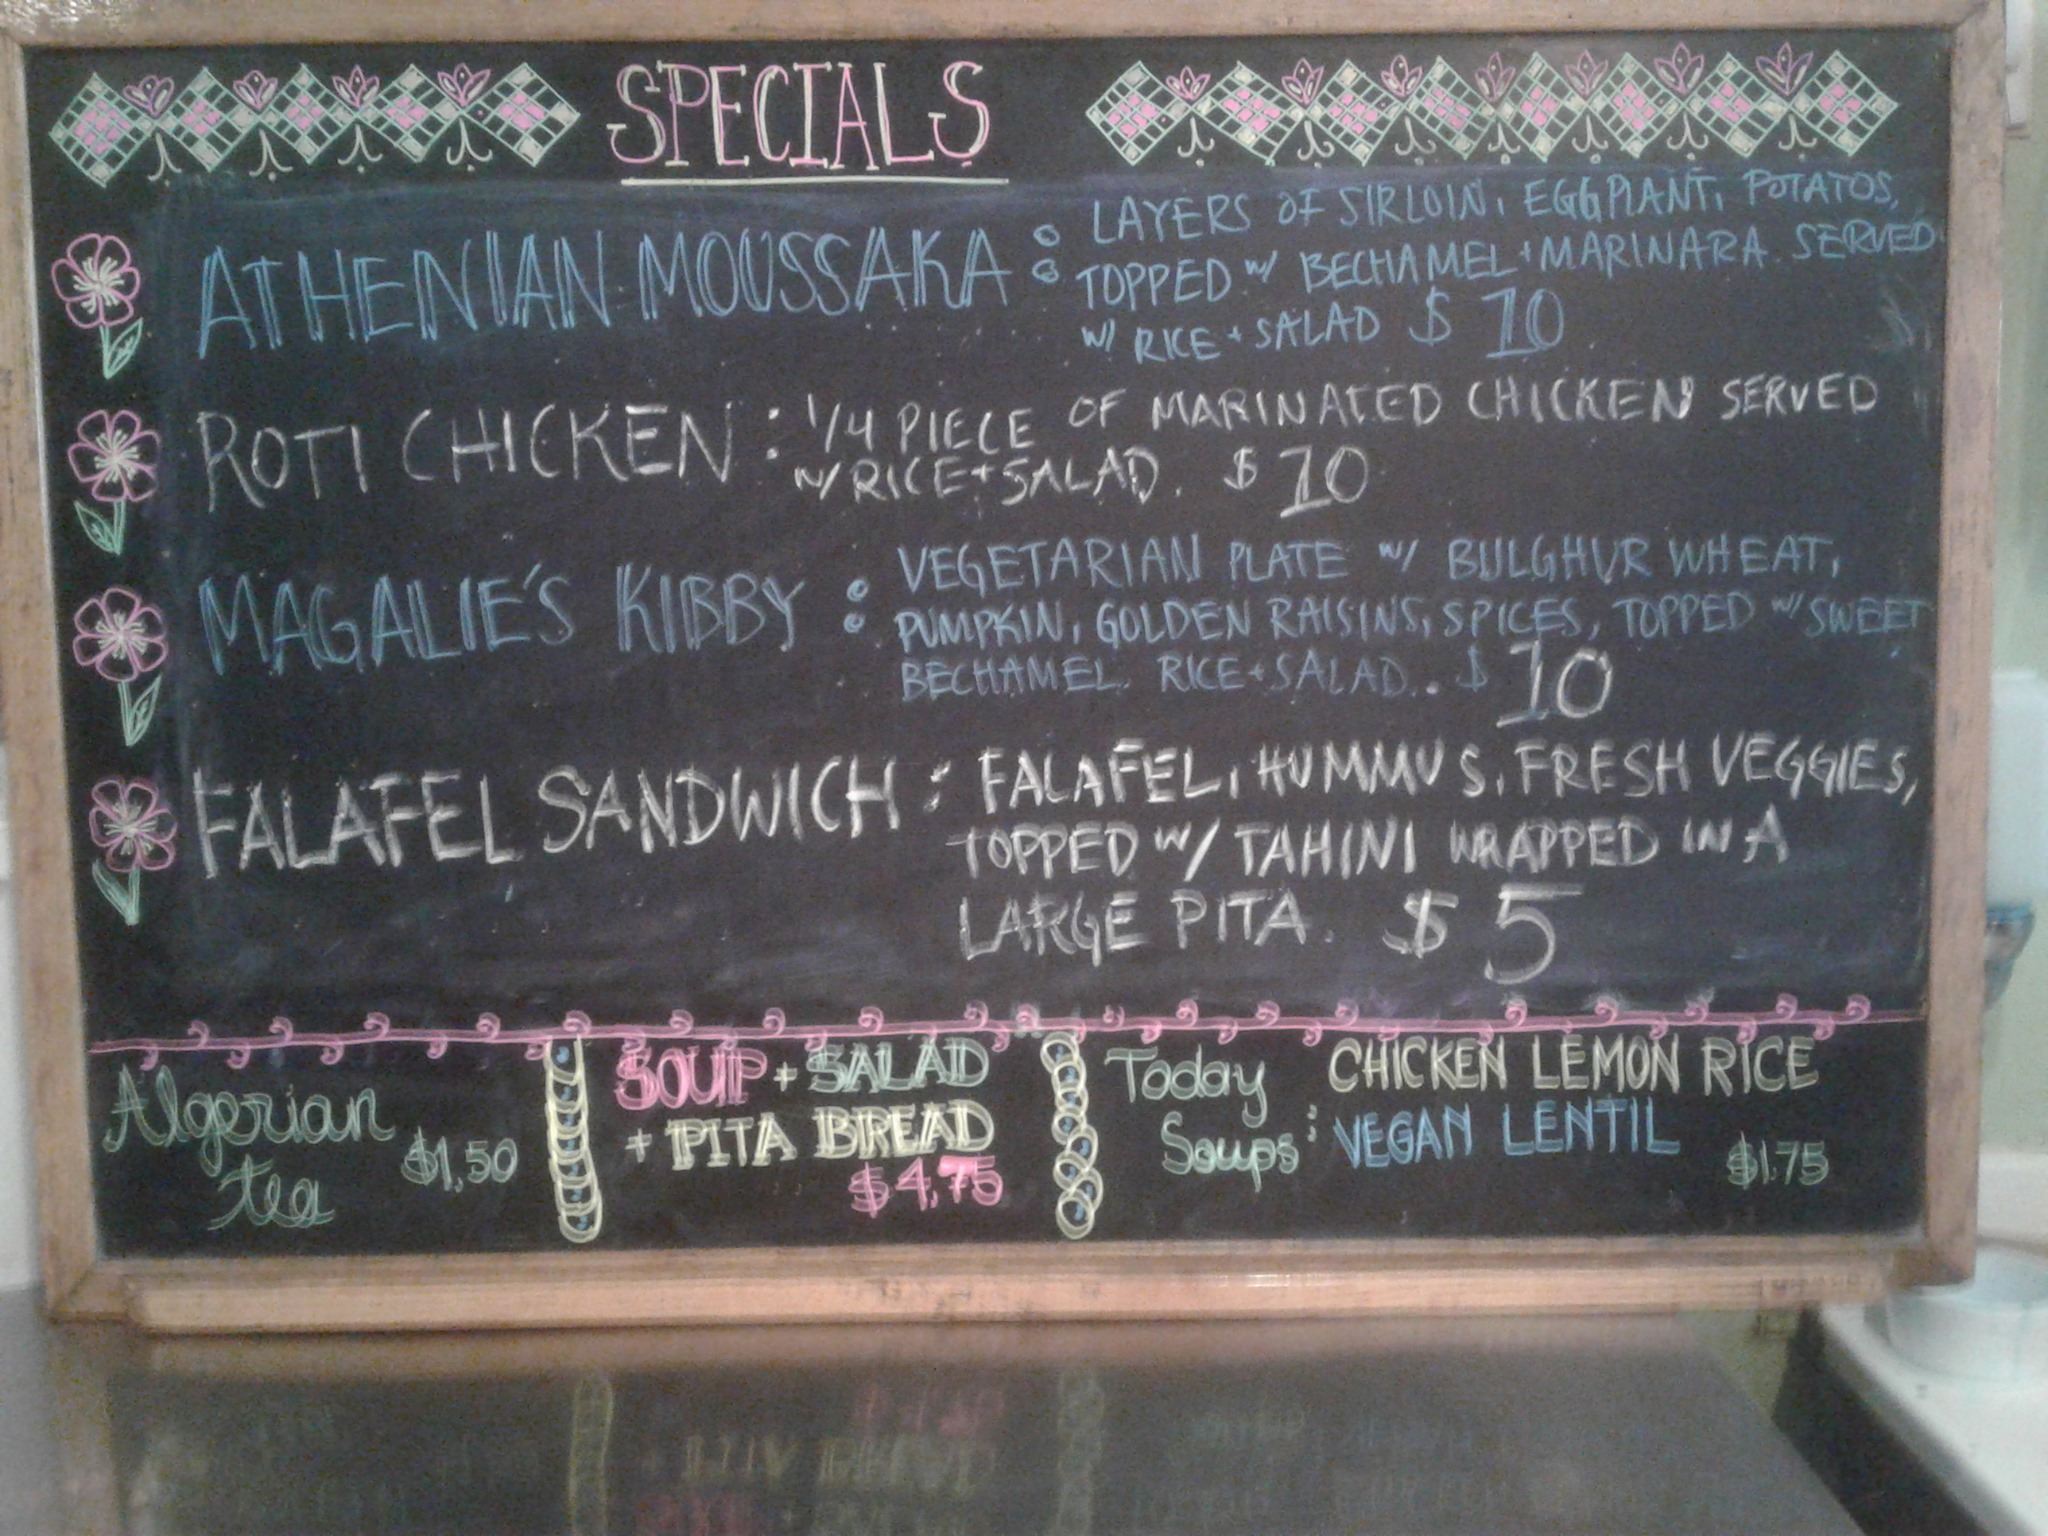 SPECIALS
ATHENIAN MOUSSAKA : LAYERS OF SIRLOIN, EGGPLANT, POTATOS,
TOPPED W/ BECHAMEL + MARINARA. SERVED
W/ RICE + SALAD $ 10
ROTI CHICKEN : 1/4 PIECE OF MARINATED CHICKEN SERVED
W/ RICE + SALAD. $ 10
MAGALIE'S KIBBY : VEGETARIAN PLATE W/ BULGHUR WHEAT,
PUMPKIN, GOLDEN RAISINS, SPICES, TOPPED W/ SWEET
BECHAMEL. RICE + SALAD. $ 10
FALAFEL SANDWICH : FALAFEL, HUMMUS, FRESH VEGGIES,
TOPPED W/ TAHINI WRAPPED IN A
LARGE PITA. $ 5
Algerian
tea $1,50
SOUP + SALAD
+ PITA BREAD
$4,75
Today Soups : CHICKEN LEMON RICE
VEGAN LENTIL
$1.75